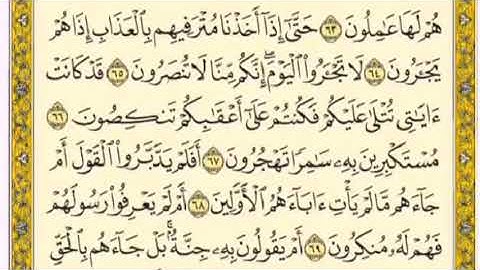 هُمْ لَهَا عَٰمِلُونَ ٦٣ حَتَّىٰٓ إِذَآ أَخَذْنَا مُتْرَفِيهِم بِٱلْعَذَابِ إِذَا هُمْ
يَجْـَٔرُونَ ٦٤ لَا تَجْـَٔرُوا۟ ٱلْيَوْمَ ۖ إِنَّكُم مِّنَّا لَا تُنصَرُونَ ٦٥ قَدْ كَانَتْ
ءَايَٰتِى تُتْلَىٰ عَلَيْكُمْ فَكُنتُمْ عَلَىٰٓ أَعْقَٰبِكُمْ تَنكِصُونَ ٦٦
مُسْتَكْبِرِينَ بِهِۦ سَٰمِرًا تَهْجُرُونَ ٦٧ أَفَلَمْ يَدَّبَّرُوا۟ ٱلْقَوْلَ أَمْ
جَآءَهُم مَّا لَمْ يَأْتِ ءَابَآءَهُمُ ٱلْأَوَّلِينَ ٦٨ أَمْ لَمْ يَعْرِفُوا۟ رَسُولَهُمْ
فَهُمْ لَهُۥ مُنكِرُونَ ٦٩ أَمْ يَقُولُونَ بِهِۦ جِنَّةٌۢ ۚ بَلْ جَآءَهُم بِٱلْحَقِّ